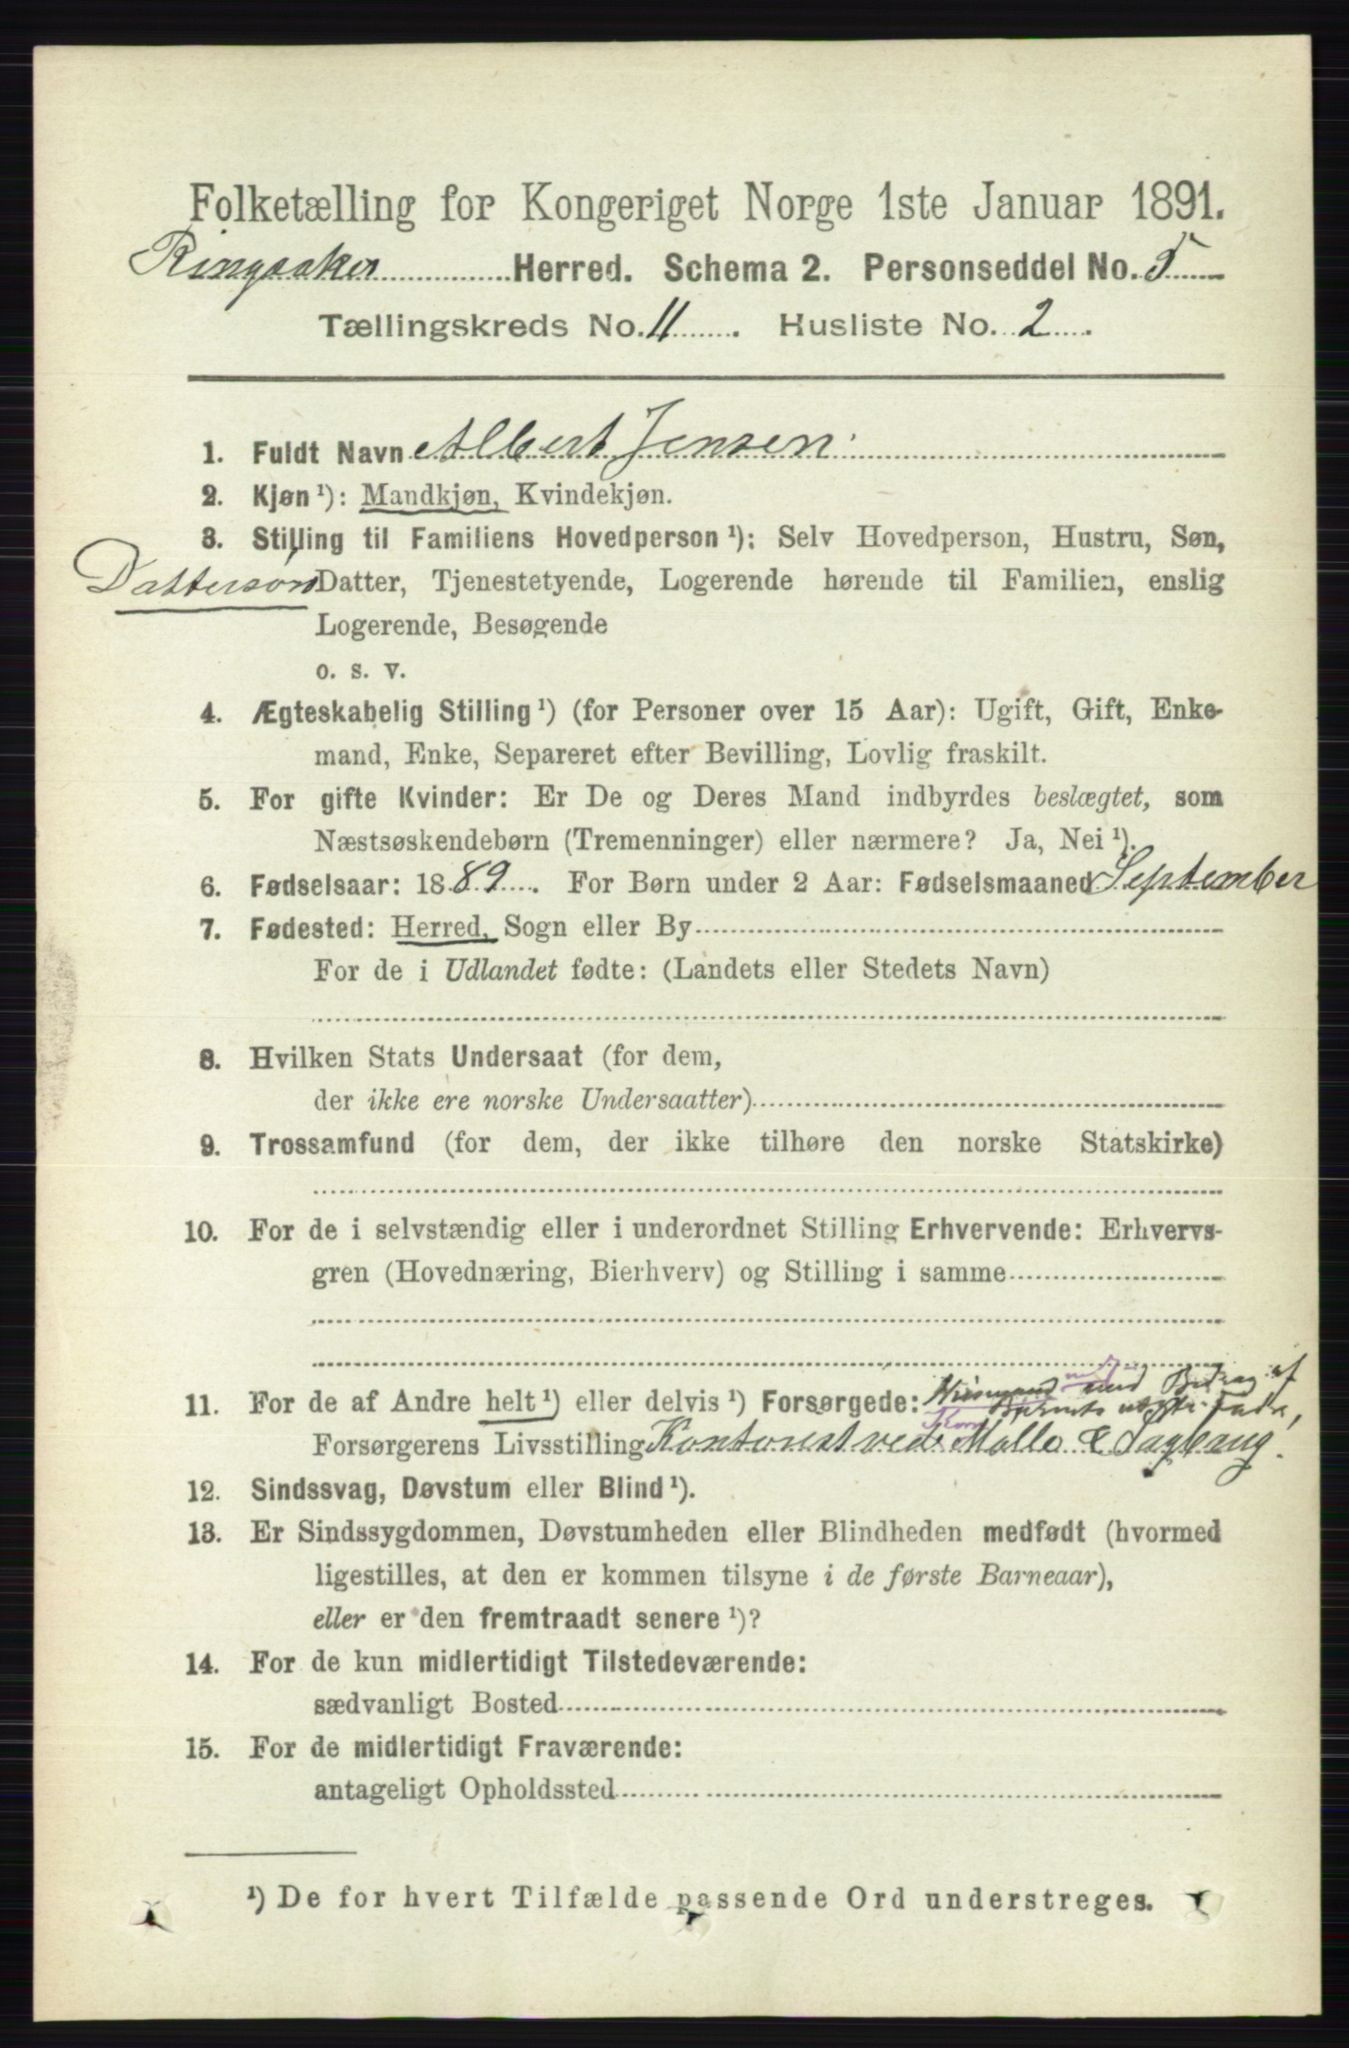 Folketælling for Kongeriget Norge 1ste Januar 1891.
Ringsaker Herred. Schema 2. Personseddel No. 5
Tællingskreds No. 11. Husliste No. 2.
1. Fuldt Navn Albert Jensen.
2. Kjøn ¹): Mandkjøn, Kvindekjøn.
3. Stilling til Familiens Hovedperson ¹): Selv Hovedperson, Hustru, Søn,
Dattersøn Datter, Tjenestetyende, Logerende hørende til Familien, enslig
Logerende, Besøgende
o. s. v.
4. Ægteskabelig Stilling ¹) (for Personer over 15 Aar): Ugift, Gift, Enke-
mand, Enke, Separeret efter Bevilling, Lovlig fraskilt.
5. For gifte Kvinder: Er De og Deres Mand indbyrdes beslægtet, som
Næstsøskendebørn (Tremenninger) eller nærmere? Ja, Nei ¹).
6. Fødselsaar: 1889. For Børn under 2 Aar: Fødselsmaaned September
7. Fødested: Herred, Sogn eller By
For de i Udlandet fødte: (Landets eller Stedets Navn)
8. Hvilken Stats Undersaat (for dem,
der ikke ere norske Undersaatter)
9. Trossamfund (for dem, der ikke tilhøre den norske Statskirke)
10. For de i selvstændig eller i underordnet Stilling Erhvervende: Erhvervs-
gren (Hovednæring, Bierhverv) og Stilling i samme
11. For de af Andre helt ¹) eller delvis ¹) Forsørgede: med Bidrag af
Barnets uægte Fader,
Forsørgerens Livsstilling Kontorist ved Mølle & Sagbrug.
12. Sindssvag, Døvstum eller Blind ¹).
13. Er Sindssygdommen, Døvstumheden eller Blindheden medfødt (hvormed
ligestilles, at den er kommen tilsyne i de første Barneaar),
eller er den fremtraadt senere ¹)?
14. For de kun midlertidigt Tilstedeværende:
sædvanligt Bosted
15. For de midlertidigt Fraværende:
antageligt Opholdssted
¹) De for hvert Tilfælde passende Ord understreges.